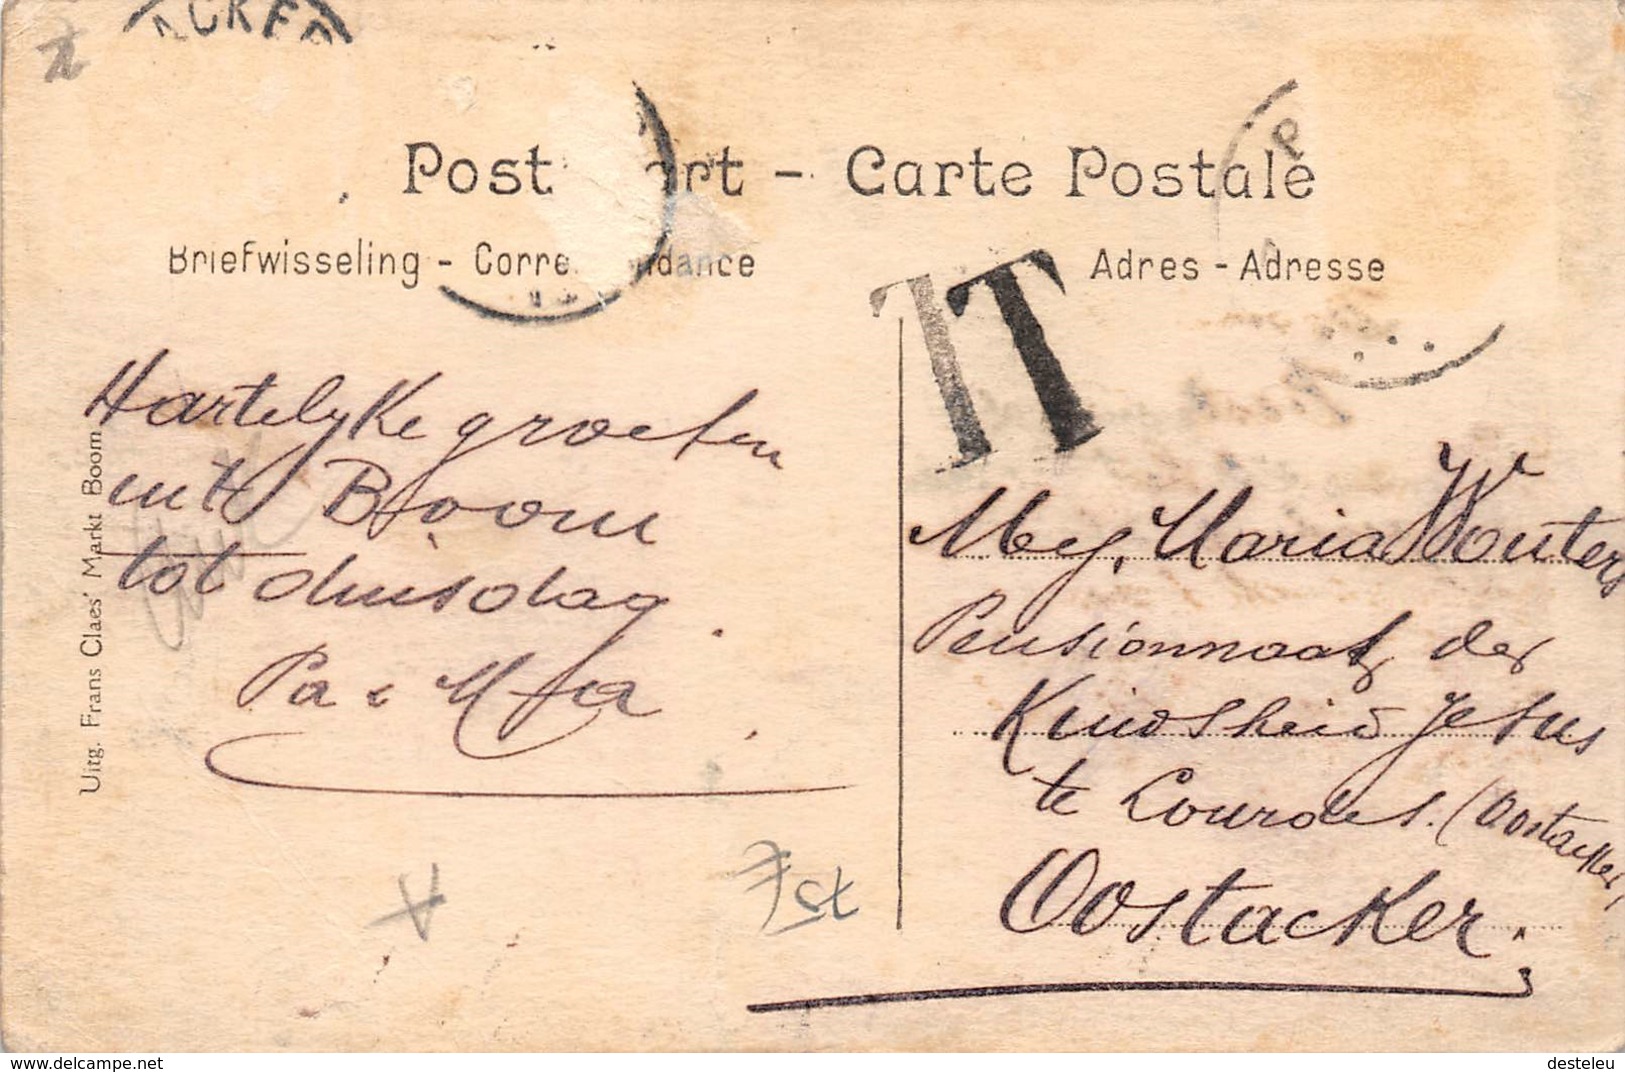 ACKER
Post art - Carte Postale
P
Briefwisseling - Corre ndance
Adres - Adresse
T T
Hartelyke groeten
uit Boom
tot duisdag
Pa & Ma
Mej. Maria Wouters
Pensionnaat der
Kindsheid Jesus
te Lourdes. (Oostacker)
Oostacker.
Uitg. Frans Claes' Markt Boom
delcampe.net
desteleu